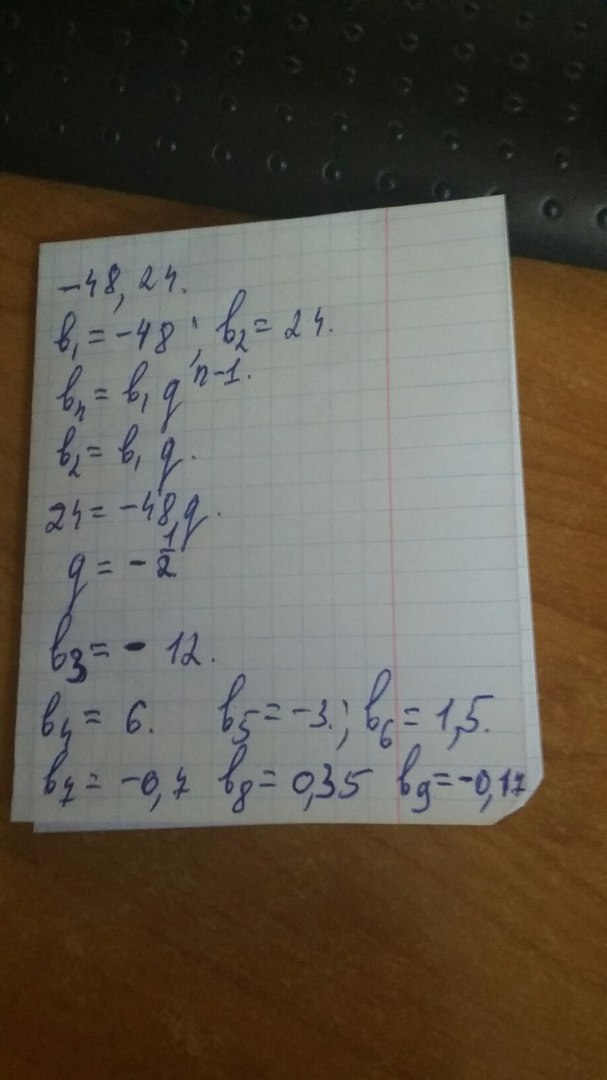 -48, 24.
b₁ = -48 ; b₂ = 24.
bₙ = b₁ qⁿ⁻¹.
b₂ = b₁ q.
24 = -48 q.
q = - 1/2
b₃ = - 12.
b₄ = 6. b₅ = -3. ; b₆ = 1,5.
b₇ = -0,7 b₈ = 0,35 b₉ = -0,17